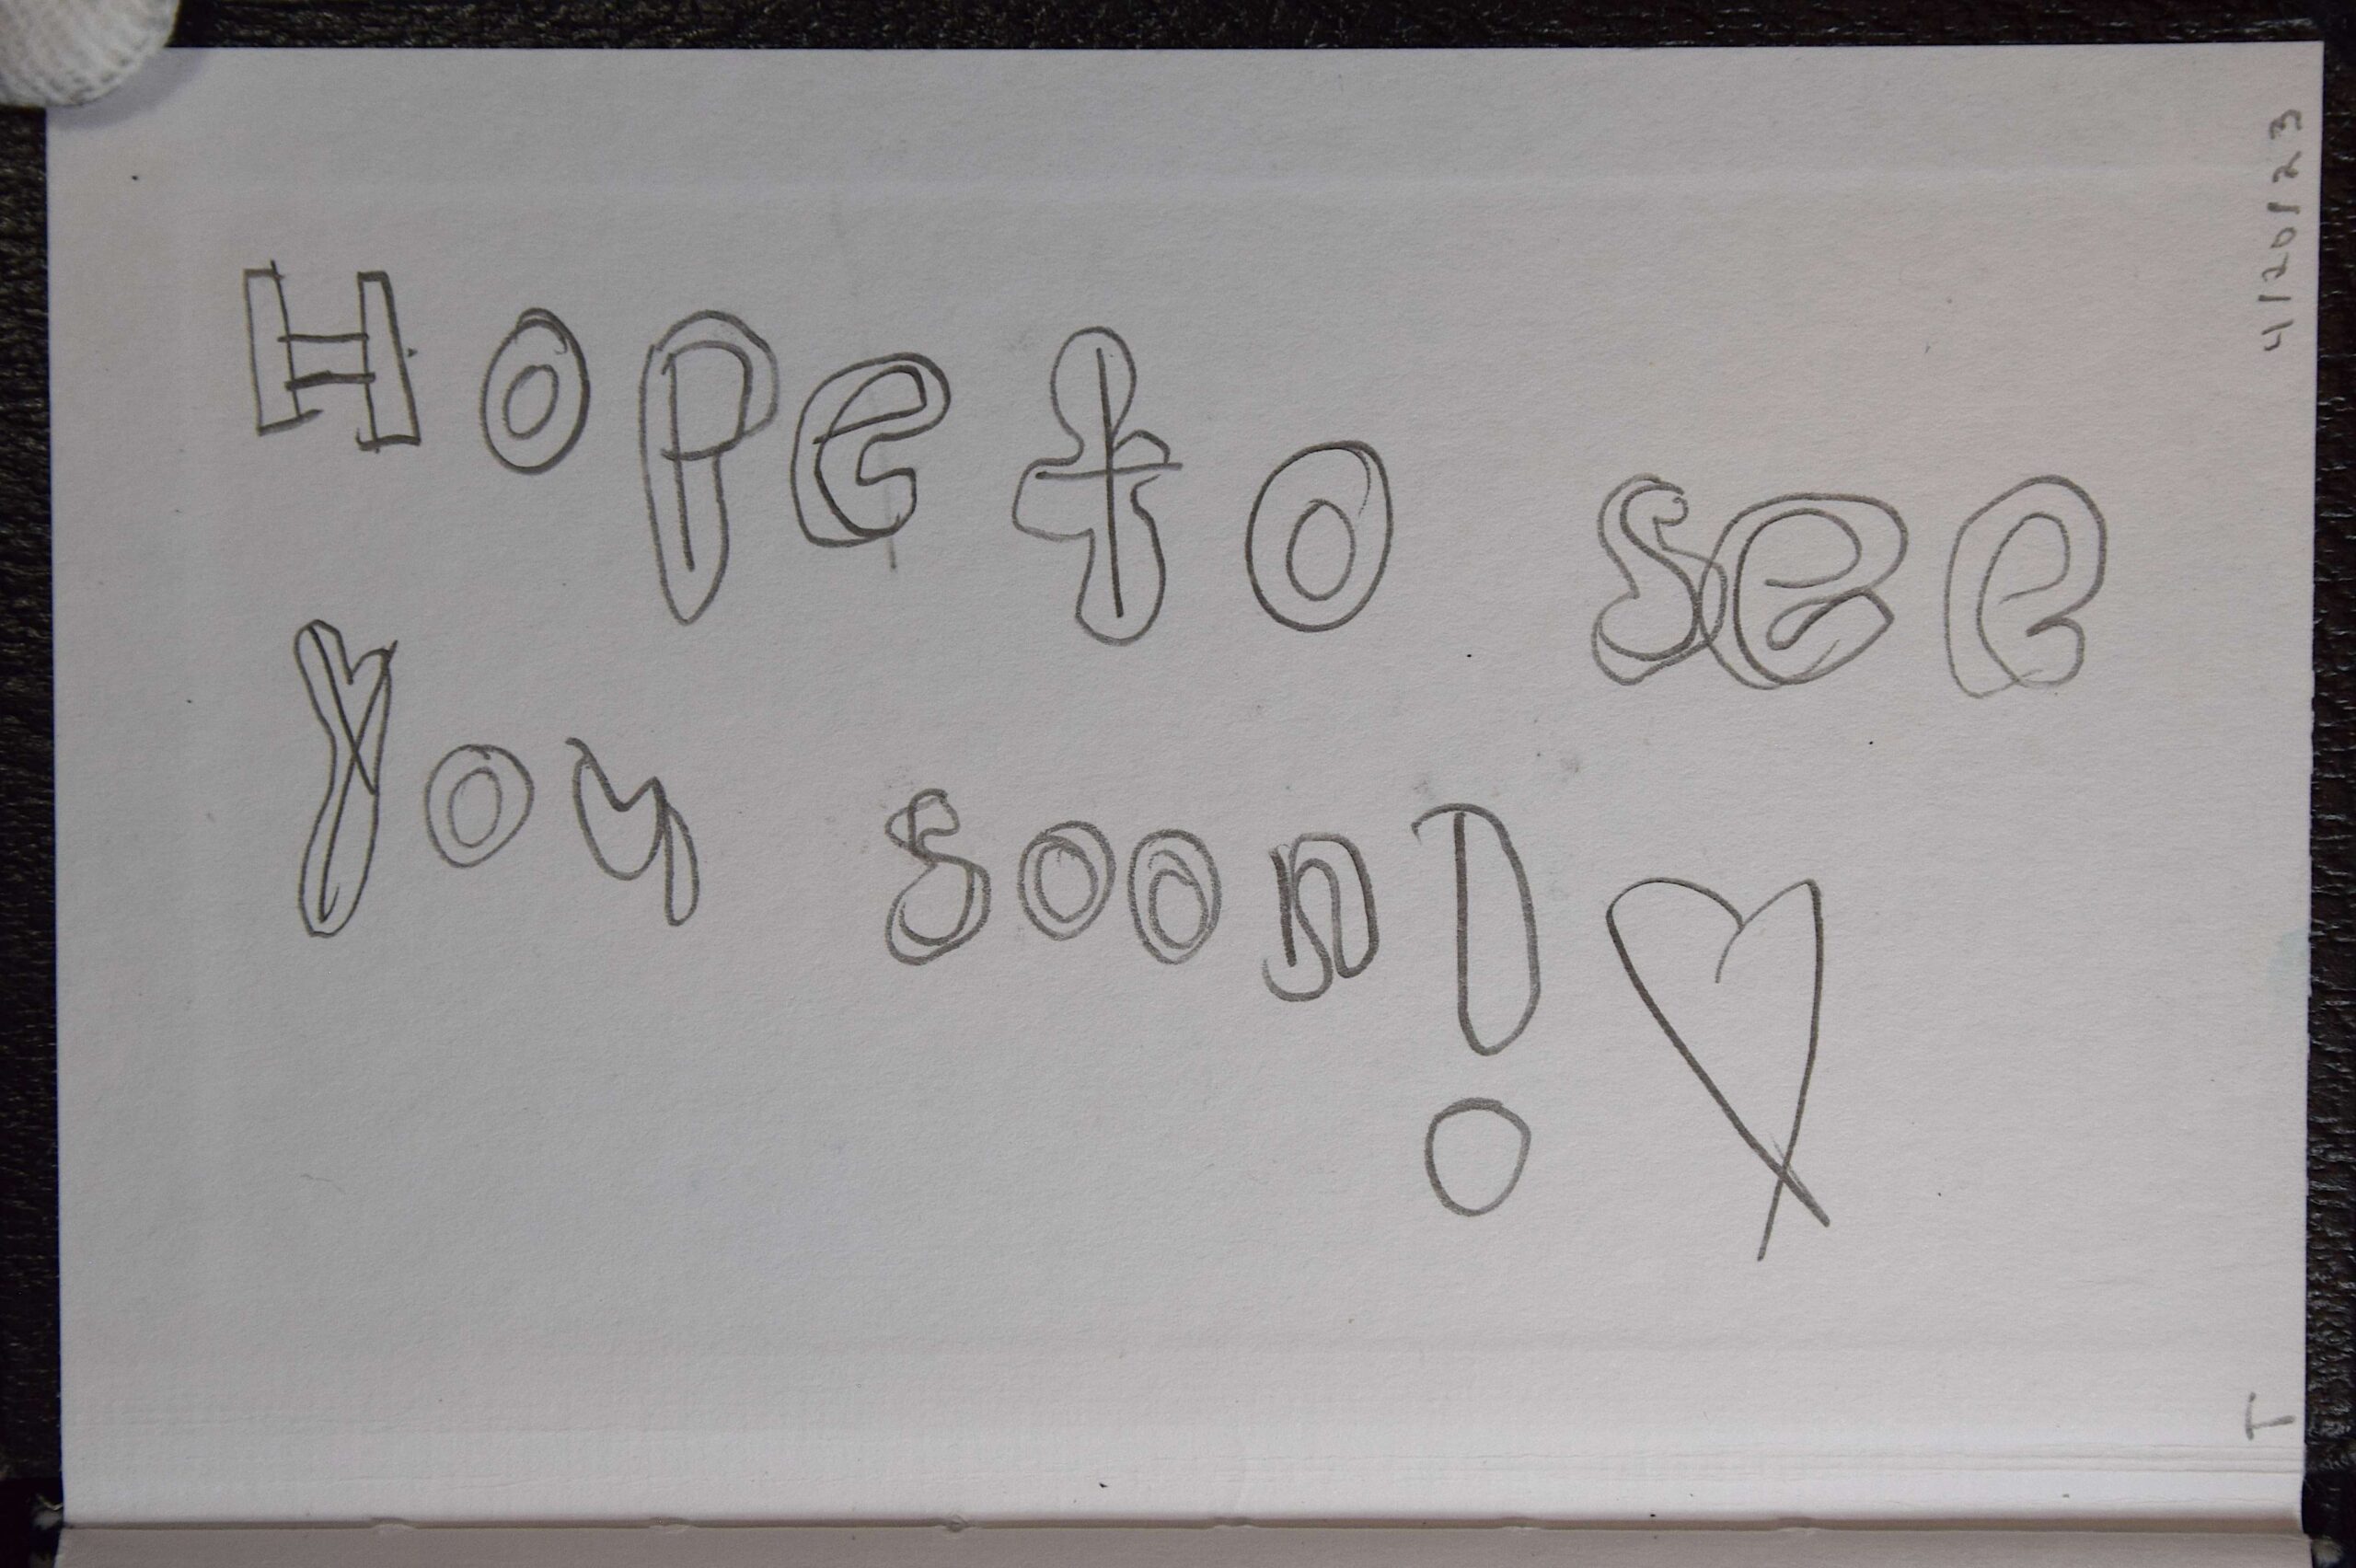 Hope to see
You soon! ♡
4/20/23
T